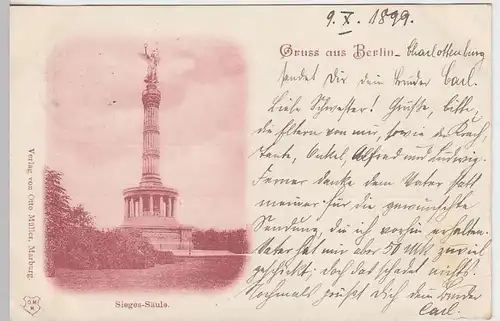 9. X. 1899.
Gruss aus Berlin - Charlottenburg
sendet Dir dein Bruder Carl.
Liebe Schwester! Grüße, bitte,
die Eltern von mir, sowie
Tante, Onkel, Alfred und Ludwig.
Ferner danke dem Vater statt
meiner für die gewünschte
Sendung, die ich vorhin erhalten.
Vater hat mir aber 50 M zuviel
geschickt; doch das schadet nichts.
Nochmals grüßt Dich dein Bruder
Carl.
Verlag von Otto Müller, Marburg.
Sieges-Säule.
O.M.
M.